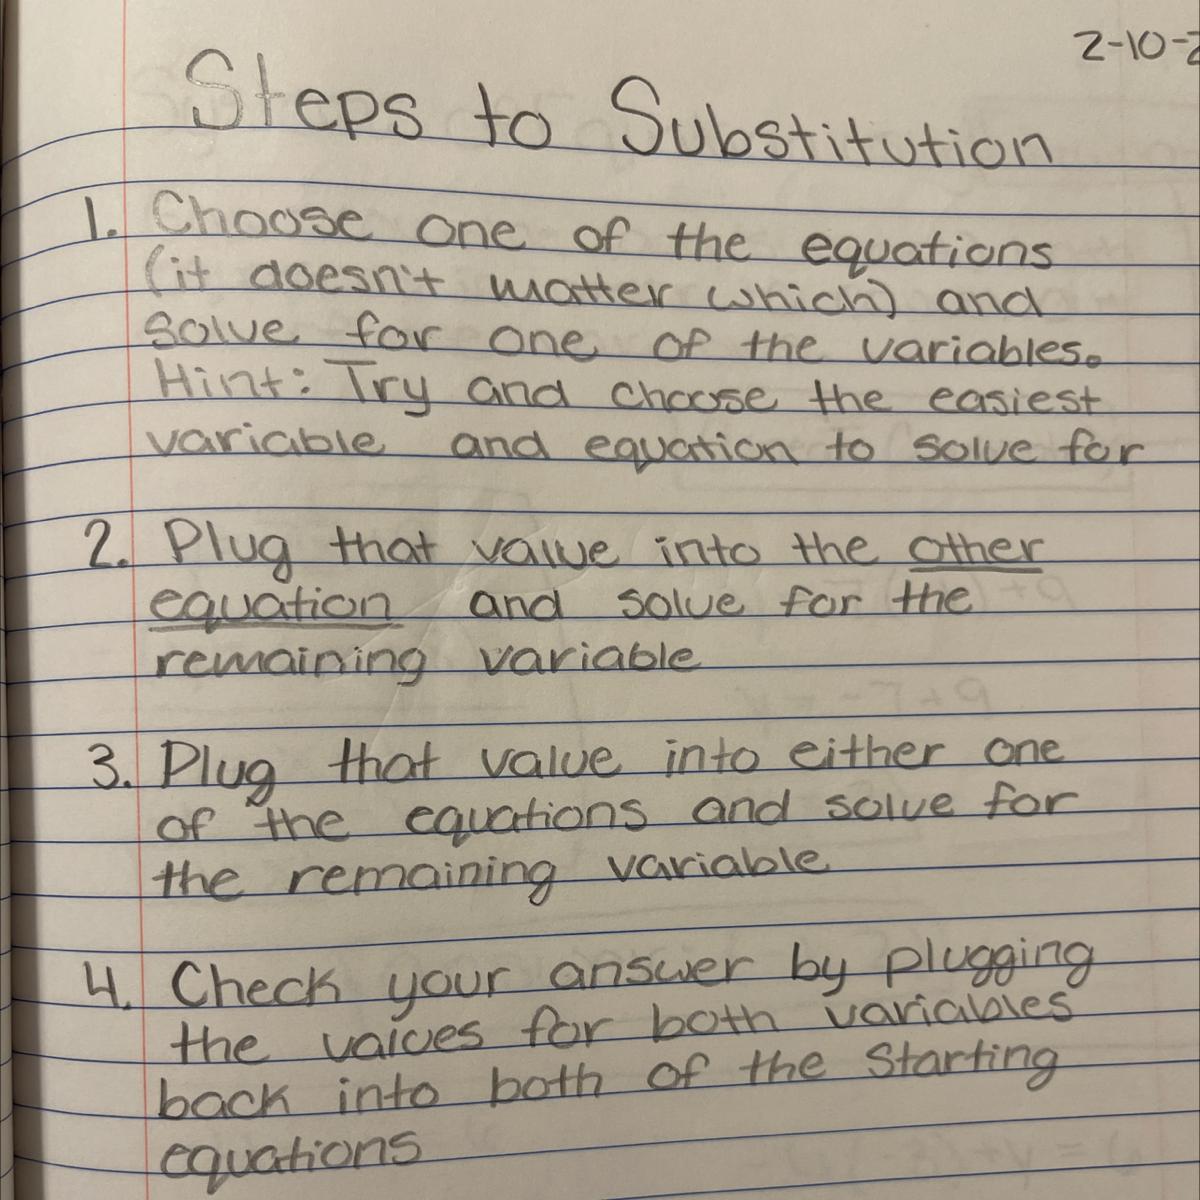 2-10-2
Steps to Substitution
1. Choose one of the equations
(it doesn't matter which) and
solve for one of the variables.
Hint: Try and choose the easiest
variable and equation to solve for
2. Plug that value into the other
equation and solve for the
remaining variable
3. Plug that value into either one
of the equations and solve for
the remaining variable
4. Check your answer by plugging
the values for both variables
back into both of the starting
equations